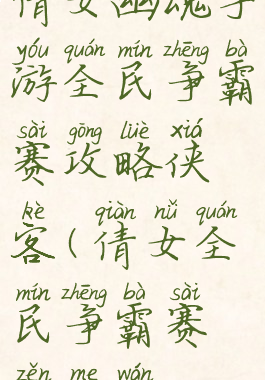 倩女幽魂手
yóu quán mín zhēng bà
游全民争霸
sài gōng lüè xiá
赛攻略侠
kè qiàn nǚ quán
客(倩女全
mín zhēng bà sài
民争霸赛
zěn me wán